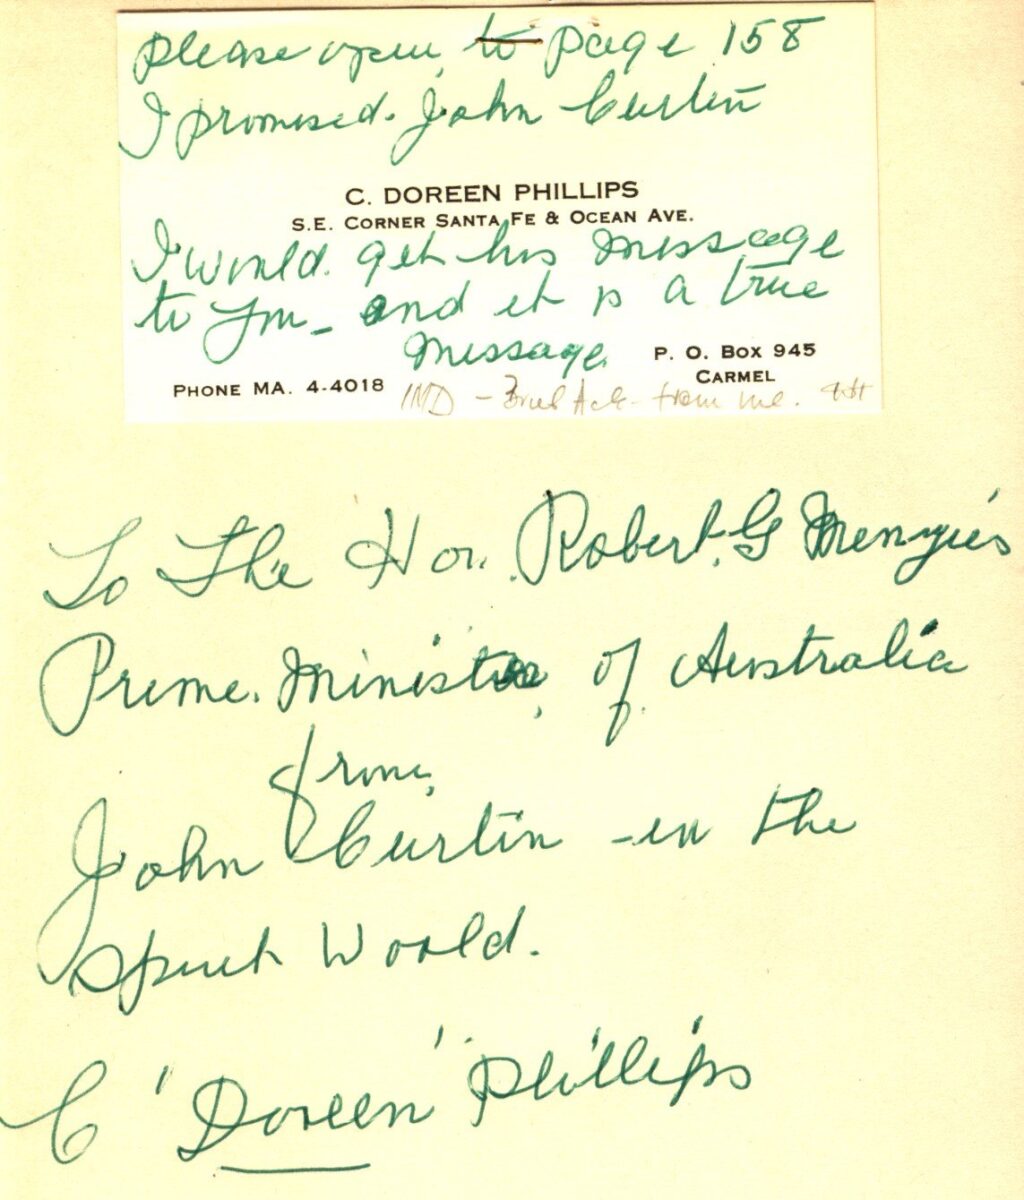 please open to page 158
I promised. John Curtin
C. DOREEN PHILLIPS
S.E. CORNER SANTA FE & OCEAN AVE.
I would get his message
to you - and it is a true
message
P. O. BOX 945
PHONE MA. 4-4018
CARMEL
IMD - Brief Ack. from me.
To The Hon. Robert. G Menzies
Prime. Minister of Australia
from,
John Curtin - in the
Spirit World.
C 'Doreen' Phillips